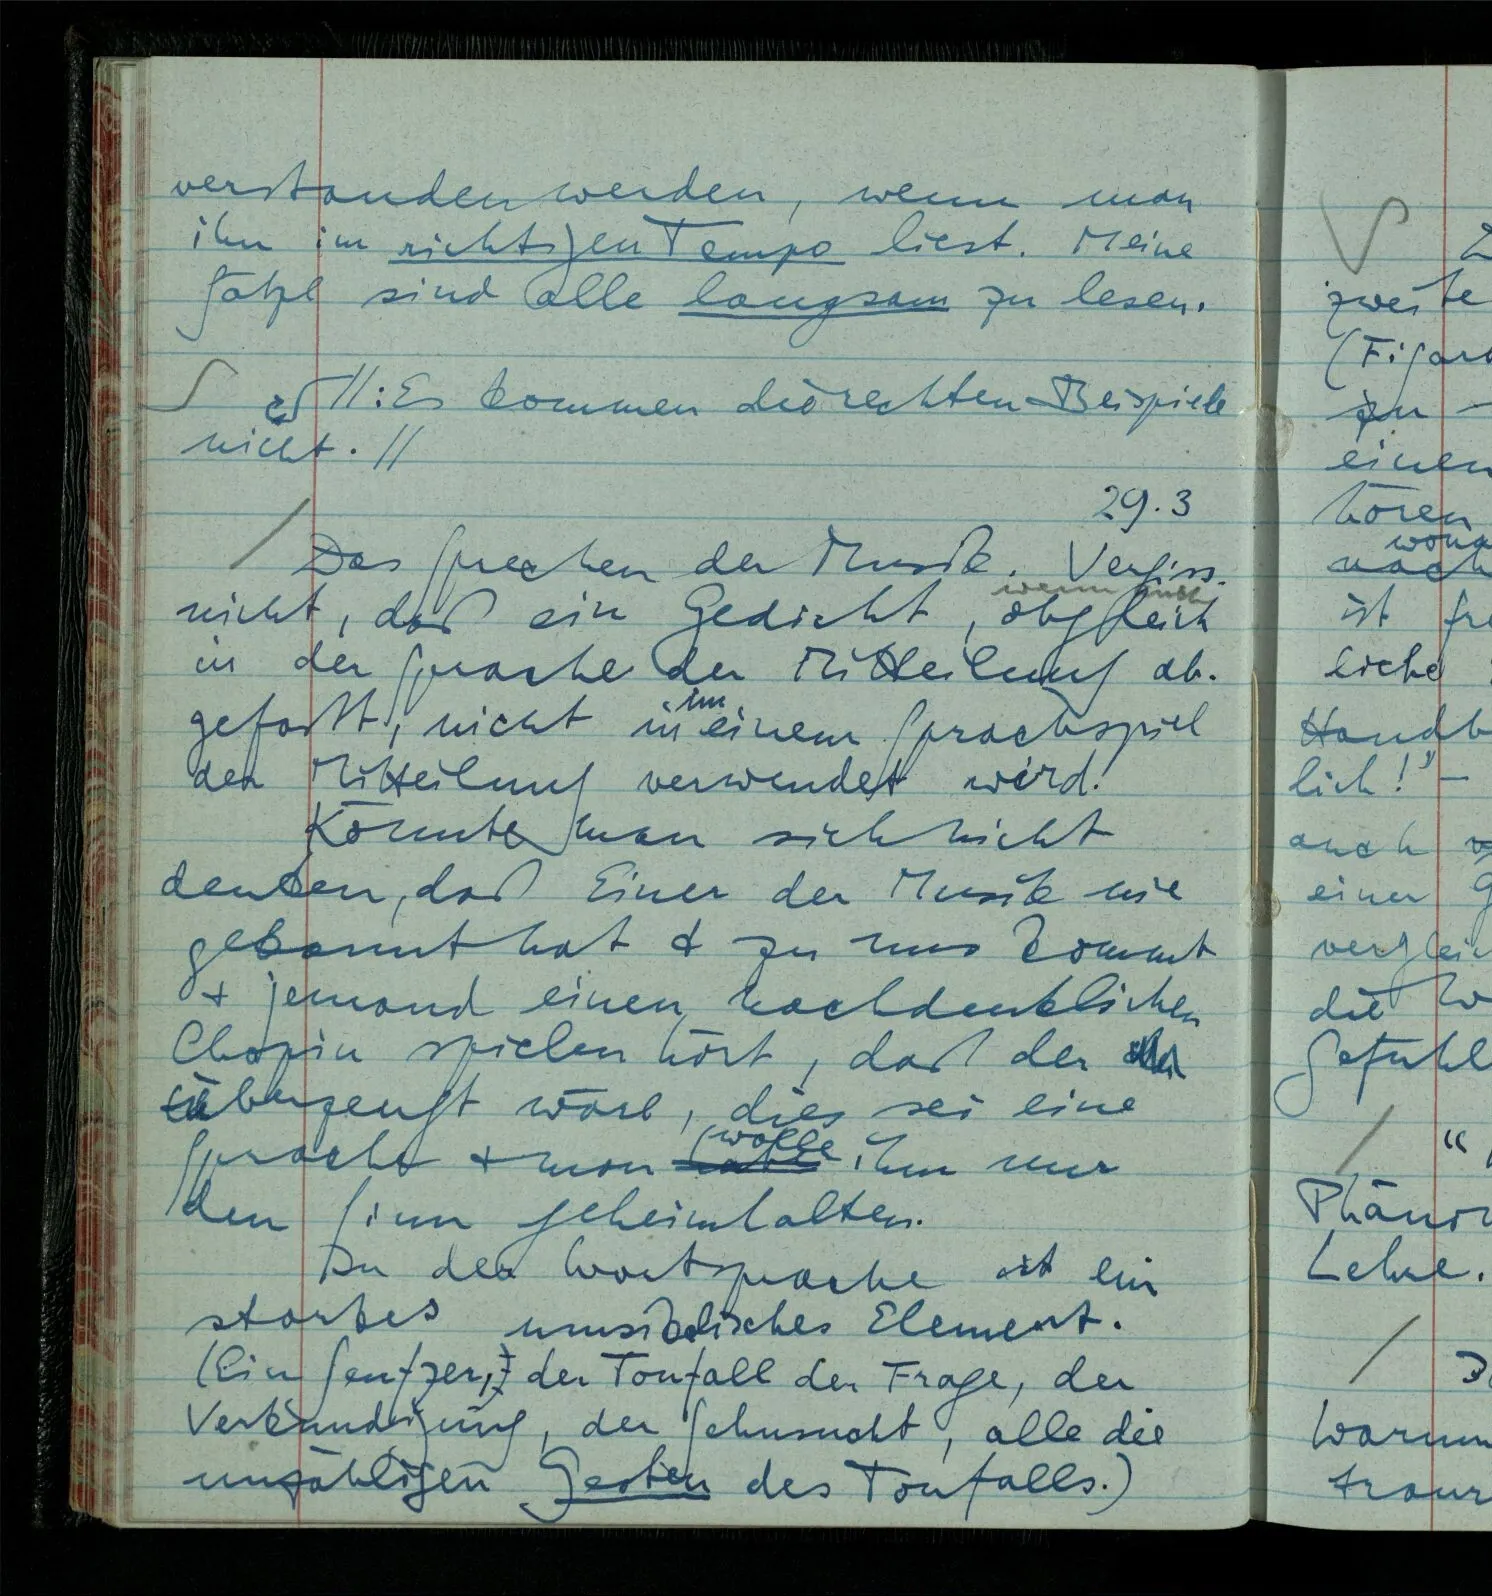 verstanden werden, wenn man
ihn im richtigen Tempo liest. Meine
Sätze sind alle langsam zu lesen.
∫ //: Es kommen die rechten Beispiele
nicht. //
29.3
/ Das Sprechen der Musik. Vergiss
wenn auch
nicht, daß ein Gedicht, obgleich
in der Sprache der Mitteilung ab-
gefaßt, nicht im einem Sprachspiel
der Mitteilung verwendet wird.
Könnte man sich nicht
denken, daß Einer der Musik nie
gekannt hat & zu uns kommt
& jemand einen nachdenklichen
Chopin spielen hört, daß der
überzeugt wäre, dies sei eine
wolle
Sprache & man ihm nur
den Sinn geheimhalten.
In der Wortsprache ist ein
starkes musikalisches Element.
(Ein Seufzer, der Tonfall der Frage, der
Verkündigung, der Sehnsucht, alle die
unzähligen Gesten des Tonfalls.)
zweite
(Figar
zu –
einen
hören
nach
ist
liche
Handb
lich!" –
auch
einer G
vergleic
die W
Gefühl
/ "
Phänom
Lehre.
/
Warum
traur